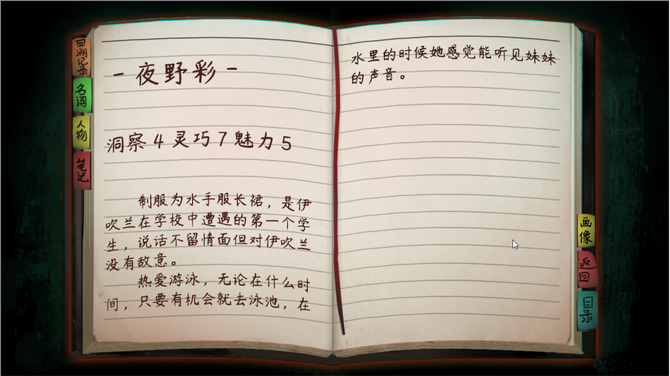 回溯记录
名词
人物
笔记
- 夜野彩 -
洞察 4 灵巧 7 魅力 5
制服为水手服长裙，是伊
吹兰在学校中遭遇的第一个学
生，说话不留情面但对伊吹兰
没有敌意。
热爱游泳，无论在什么时
间，只要有机会就去泳池，在
水里的时候她感觉能听见妹妹
的声音。
画像
返回
目录